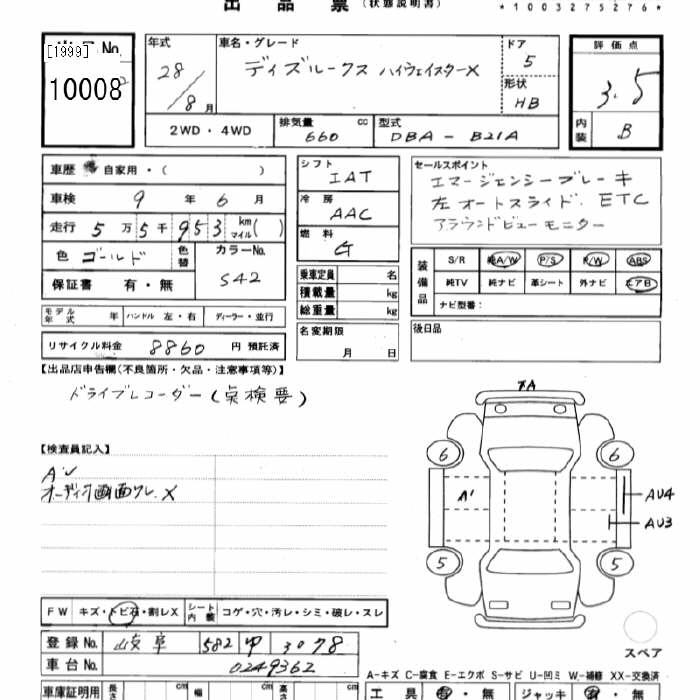 出品票 (状態説明書) *1003275276*
出品 No. [1999] 10008
年式 28/8月
車名・グレード ディズルークス ハイウェイスターX
ドア 5
形状 HB
評価点 3.5
内装 B
2WD・4WD
排気量 660 cc
型式 DBA-B21A
車歴 自家用・( )
車検 9年 6月
走行 5万5千953 km(マイル)
色 ゴールド 色替
カラーNo. S42
保証書 有・無
シフト IAT
冷房 AAC
燃料 G
乗車定員 名
積載量 kg
総重量 kg
セールスポイント
エマージェンシーブレーキ
左オートスライド. ETC
アラウンドビューモニター
装備品 S/R 純A/W P/S P/W ABS
純TV 純ナビ 革シート 外ナビ エアB
ナビ型番:
モデル年式 年 ハンドル 左・右 ディーラー・並行
リサイクル料金 8860 円 預託済
名変期限 月 日
後日品
【出品店申告欄(不良箇所・欠品・注意事項等)】
ドライブレコーダー(点検要)
【検査員記入】
A'
オーディオ画面ワレ.X
A
6 6
A'
AU4
AU3
5 5
スペア
FW キズ・トビ石・割レX シート内装 コゲ・穴・汚レ・シミ・破レ・スレ
登録No. 岐阜 582 3078
車台No. 0249362
A-キズ C-腐食 E-エクボ S-サビ U-凹ミ W-補修 XX-交換済
車庫証明用 長さ cm 幅 cm 高さ cm
工具 ・無 ジャッキ ・無